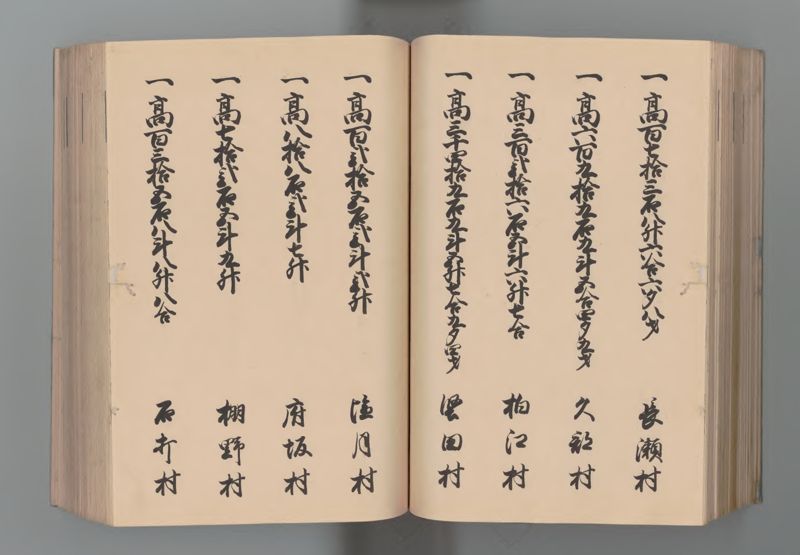 一高百七拾三石八升六合六夕八才 長瀬村
一高六百五拾五石五斗五合四夕五才 久部村
一高三百弐拾六石六斗六升七合 柏江村
一高三千四拾五石五斗五升七合五夕四才 堅田村
一高百弐拾五石弐斗弐升 塩月村
一高八拾八石弐斗七升 府坂村
一高七拾弐石五斗九升 棚野村
一高百三拾五石八斗八升八合 石打村